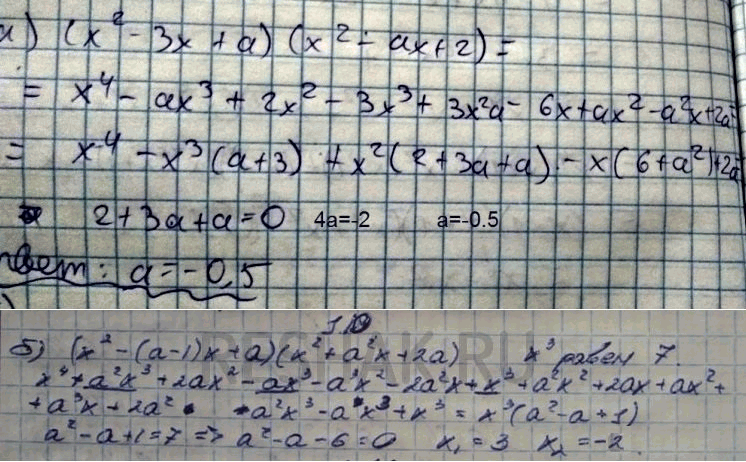 а) (x² - 3x + a)(x² - ax + 2) =
= x⁴ - ax³ + 2x² - 3x³ + 3x²a - 6x + ax² - a²x + 2a =
= x⁴ - x³(a+3) + x²(2+3a+a) - x(6+a²) + 2a
2+3a+a=0 4a=-2 a=-0.5
Ответ: a = -0,5
б) (x² - (a-1)x + a)(x² + a²x + 2a) x³ равен 7.
x⁴ + a²x³ + 2ax² - ax³ - a³x² - 2a²x + x³ + a²x² + 2ax + ax² +
+ a³x + 2a² a²x³ - ax³ + x³ = x³(a² - a + 1)
a² - a + 1 = 7 => a² - a - 6 = 0 x₁ = 3 x₂ = -2
RESHAK.RU